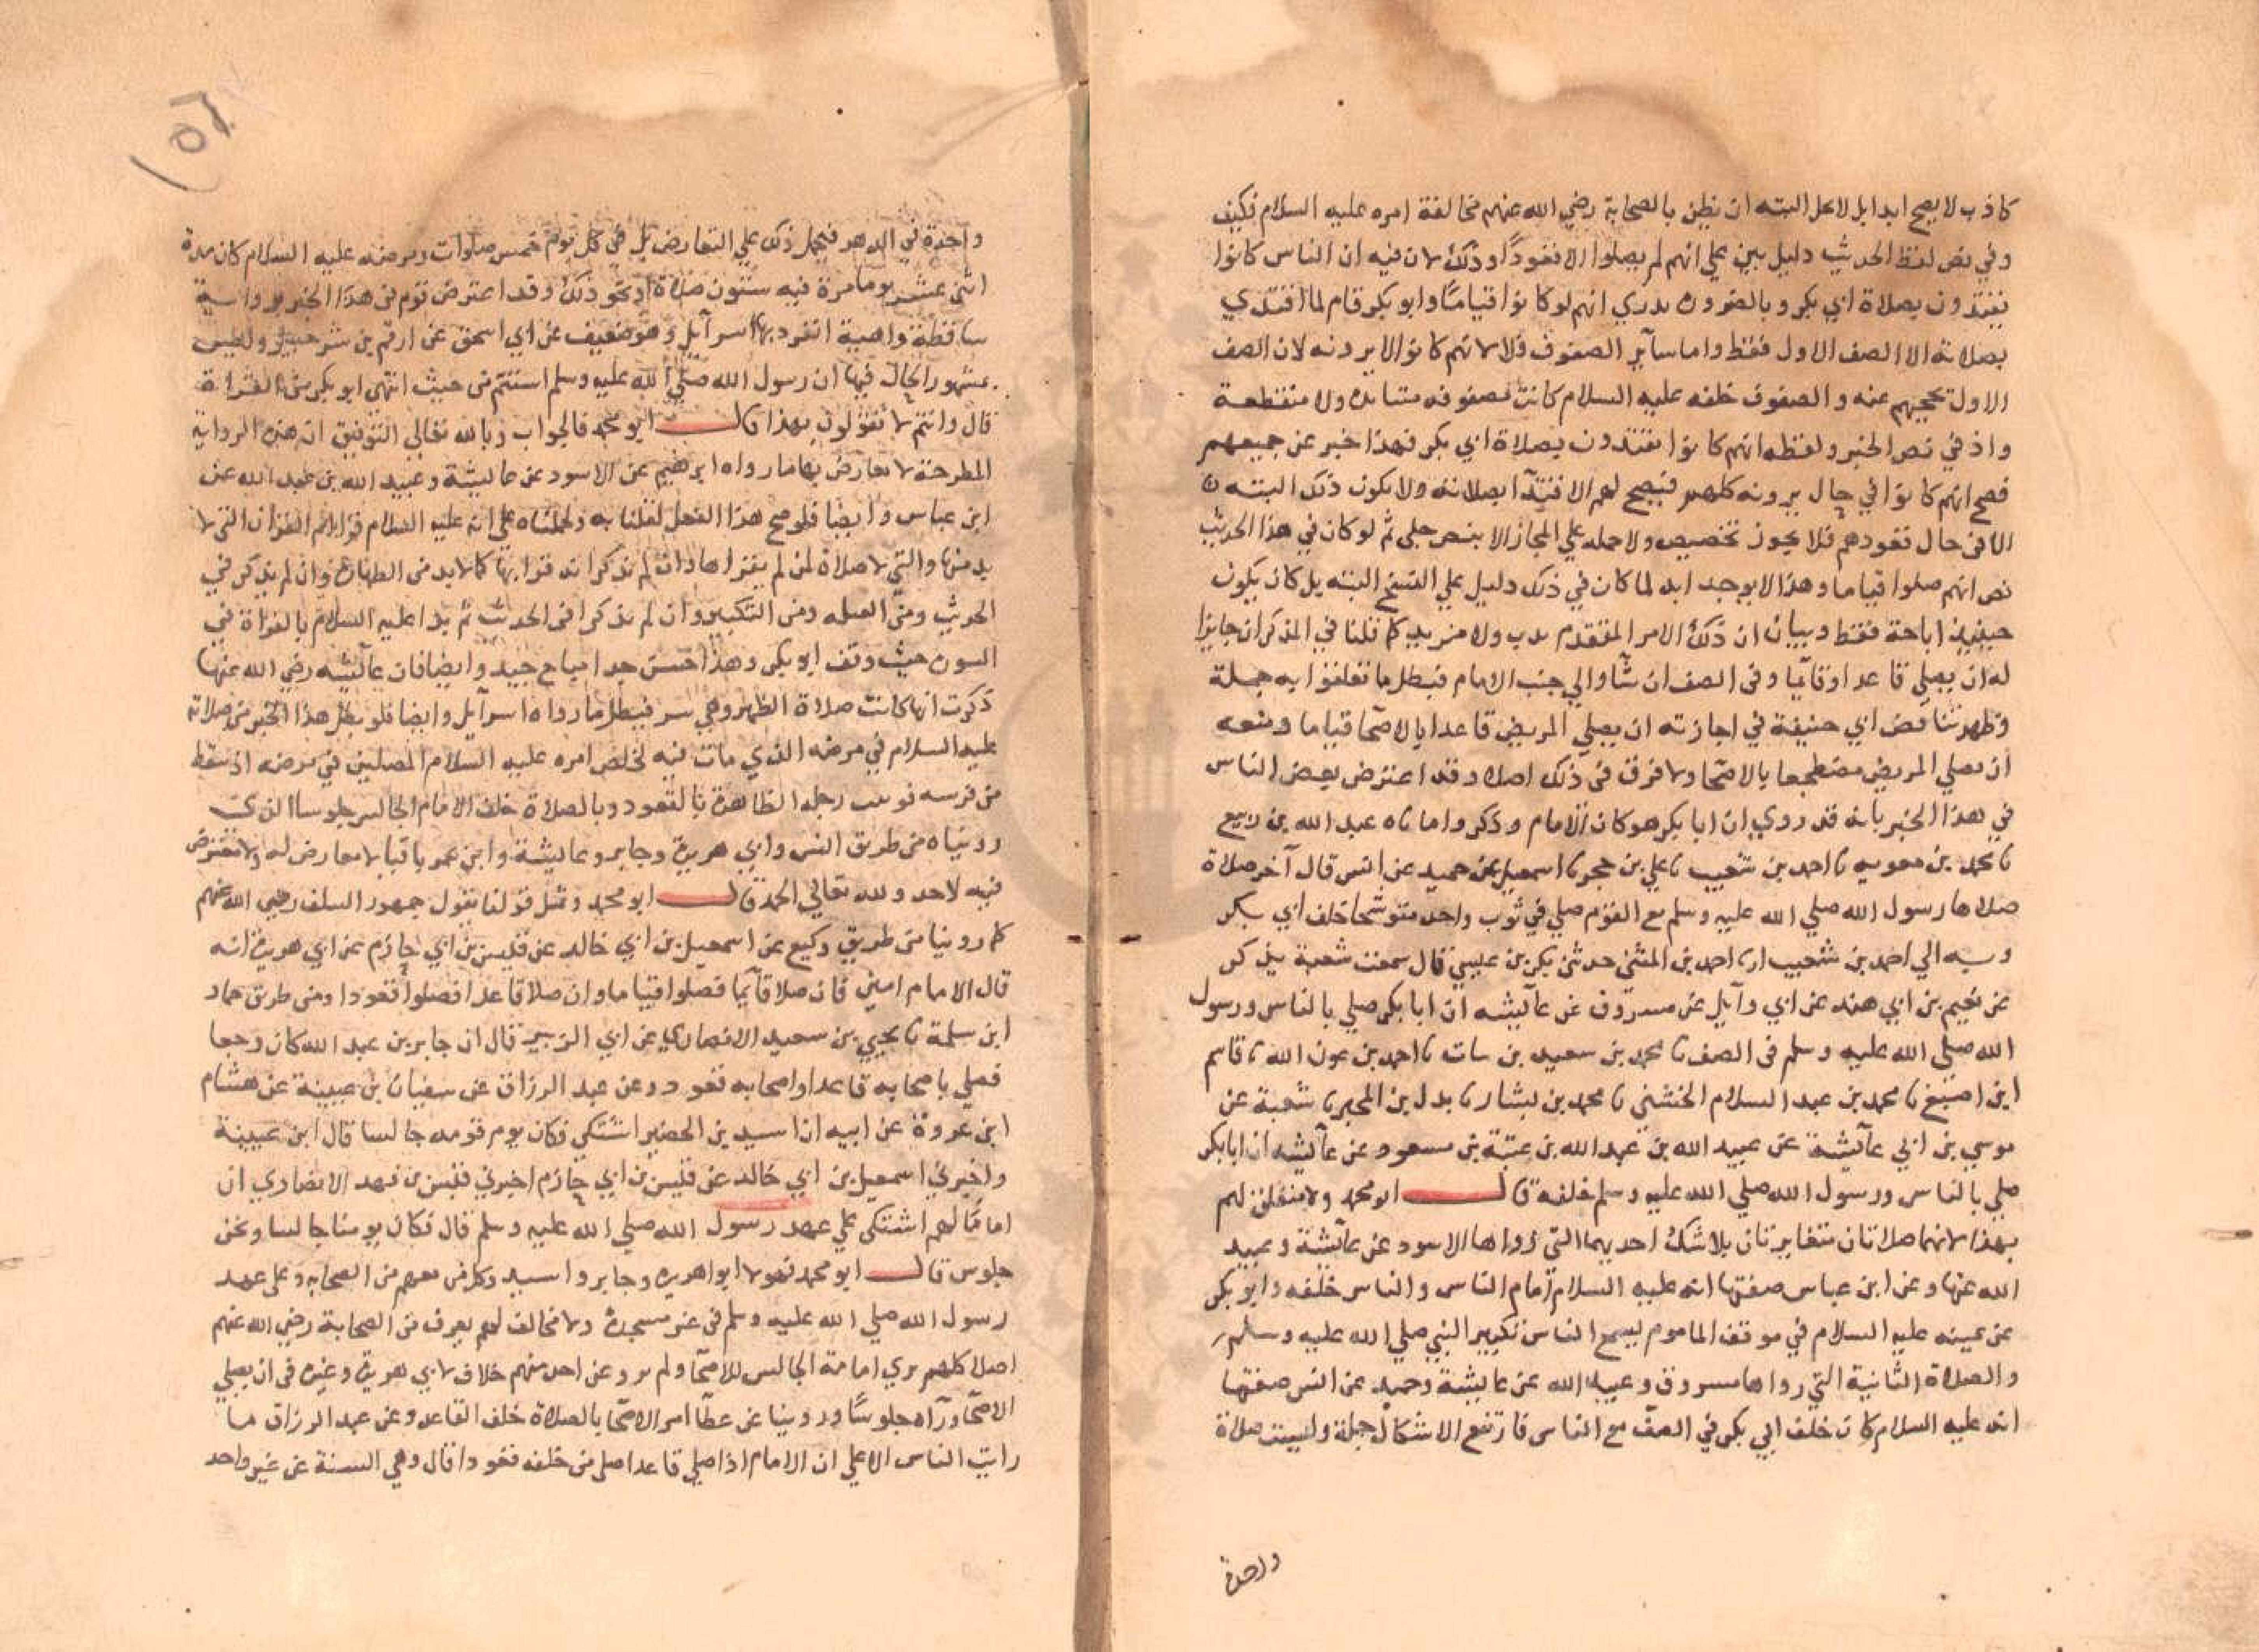 كاذب لا يصح ابدا بل لا يحل البته ان يظن بالصحابة رضي الله عنهم مخالفة امره عليه السلام فكيف
وفي نص لفظ الحديث دليل بين علي انهم لم يصلوا الا قعودًا وذلك لان فيه ان الناس كانوا
يقتدون بصلاة ابي بكر وبالضرورة ندري انهم لو كانوا قيامًا وابو بكر قام لما اقتدي
بصلاته الا الصف الاول فقط واما ساير الصفوف فلا لانهم كانوا لا يرونه لان الصف
الاول يحجبهم عنه والصفوف خلفه عليه السلام كانت مصفوفه متسانده ولا متقطعة
واذ في نص الخبر ولفظه انهم كانوا يقتدون بصلاة ابي بكر فهذا خبر عن جميعهم
فصح انهم كانوا في حال يرونه كلهم فيصح لهم الاقتدآ بصلاته ولا يكون ذلك البتة
الا في حال قعودهم فلا يجوز تخصيص ولا حمله علي المجاز الا بنص جلي ثم لو كان في هذا الحديث
نص انهم صلوا قياما وهذا لا يوجد ابدا لما كان في ذلك دليل علي النسخ البته بل كان يكون
حينيذ اباحة فقط وبيان ان ذلك الامر المتقدم ندب ولا مزيد كما قلنا في المذكر ان جايزا
له ان يصلي قاعدا وقايمًا وفي الصف ان شآ والي جنب الامام فبطل ما تعلقوا به جملة
وظهر تناقض ابي حنيفة في اجازته ان يصلي المريض قاعدا بالاصحا قياما ومنعه
ان يصلي المريض مضطجعا بالاصحا ولا فرق في ذلك اصلا وقد اعترض بعض الناس
في هذا الخبر بانه قد روي ان ابا بكر هو كان الامام وذكروا ما ناه عبد الله بن ربيع
نا محمد بن معويه نا احمد بن شعيب نا علي بن حجر نا اسمعيل عن حميد عن انس قال آخر صلاة
صلاها رسول الله صلي الله عليه وسلم مع القوم صلي في ثوب واحد متوشحا خلف ابي بكر
وبه الي احمد بن شعيب انا احمد بن المثني حدثني بكر بن عيسي قال سمعت شعبة يذكر
عن نعيم بن ابي هند عن ابي وآيل عن مسروق عن عآيشه ان ابا بكر صلي بالناس ورسول
الله صلي الله عليه وسلم في الصف نا محمد بن سعيد بن نبات نا احمد بن عون الله نا قاسم
ابن اصبغ نا محمد بن عبد السلام الخشني نا محمد بن بشار نا بدل بن المحبر نا شعبة عن
موسي بن ابي عآيشة عن عبيد الله بن عبد الله بن عتبة بن مسعود عن عآيشه ان ابا بكر
صلي بالناس ورسول الله صلي الله عليه وسلم خلفه قال ابو محمد ولا متعلق لهم
بهذا لانهما صلاتان متغايرتان بلا شك احديهما التي رواها الاسود عن عآيشة وعبيد
الله عنها وعن ابن عباس صفتها انه عليه السلام امام الناس والناس خلفه وابو بكر
عن يمينه عليه السلام في موقف الماموم يسمع الناس تكبير النبي صلي الله عليه وسلم
والصلاة الثانية التي رواها مسروق وعبيد الله عن عايشة وحميد عن انس صفتها
انه عليه السلام كان خلف ابي بكر في الصف مع الناس فارتفع الاشكال جملة وليست صلاة
واحدة
واحدة في الدهر فيحمل ذلك علي التعارض بل في كل يوم خمس صلوات ومرضه عليه السلام كان مدة
اثني عشر يوما مرة فيه ستون صلاة او نحو ذلك وقد اعترض قوم في هذا الخبر برواية
ساقطة واهية انفرد بها اسرآيل وهو ضعيف عن ابي اسحق عن ارقم بن شرحبيل وليس
بمشهور الحال فيها ان رسول الله صلي الله عليه وسلم استتم من حيث انتهي ابو بكر من القرآة
قال وانتم لا تقولون بهذا قال ابو محمد فالجواب وبالله تعالي التوفيق ان هذه الرواية
المطرحة لا يعارض بها ما رواه ابرهيم عن الاسود عن عايشة وعبيد الله بن عبد الله عن
ابن عباس وايضا فلو صح هذا الفعل لقلنا به ولحملناه علي انه عليه السلام قرا ام القران التي لا
بد منها والتي لا صلاة لمن لم يقراها وان لم يذكر انه قرا بها كما لا بد من الطهارة وان لم يذكر في
الحديث ومن القبله ومن التكبير وان لم يذكرا في الحديث ثم بدا عليه السلام بالقراة في
السورة حيث وقف ابو بكر وهذا حسن جدا مباح جيد وايضا فان عآيشه رضي الله عنها
ذكرت انها كانت صلاة الظهر وهي سر فبطل ما رواه اسرآيل وايضا فلو بطل هذا الخبر من صلاته
عليه السلام في مرضه الذي مات فيه لخلص امره عليه السلام المصلين في مرضه اذ سقط
من فرسه فوثيت رجله الطاهرة بالقعود وبالصلاة خلف الامام الجالس جلوسا الذي
رويناه من طريق انس وابي هريرة وجابر وعايشة وابن عمر باقيا لا معارض له ولا معترض
فيه لاحد ولله تعالي الحمد قال ابو محمد وبمثل قولنا يقول جمهور السلف رضي الله عنهم
كما روينا من طريق وكيع عن اسمعيل بن ابي خالد عن قيس بن ابي حازم عن ابي هريرة انه
قال الامام امين فان صلا قآيمًا فصلوا قياما وان صلا قاعدا فصلوا قعودا ومن طريق حماد
ابن سلمة نا يحيي بن سعيد الانصاري عن ابي الزبير قال ان جابر بن عبد الله كان وجعا
فصلي باصحابه قاعدا واصحابه قعود وعن عبد الرزاق عن سفيان بن عيينة عن هشام
ابن عروة عن ابيه ان اسيد بن الحضير اشتكي فكان يوم قومه جالسا قال ابن عيينة
واخبرني اسمعيل بن ابي خالد عن قيس بن ابي حازم اخبرني قيس بن فهد الانصاري ان
امامًا لهم اشتكي علي عهد رسول الله صلي الله عليه وسلم قال فكان يومنا جالسا ونحن
جلوس قال ابو محمد فهولا ابو هريرة وجابر واسيد وكل من معهم من الصحابه وعلي عهد
رسول الله صلي الله عليه وسلم في غير مسجده ولا مخالف لهم يعرف من الصحابة رضي الله عنهم
اصلا كلهم يري امامة الجالس للاصحا ولم يرو عن احد منهم خلاف لابي هريرة وغيره في ان يصلي
الاصحآ ورآه جلوسًا وروينا عن عطآ امر الاصحا بالصلاة خلف القاعد وعن عبد الرزاق ما
رايت الناس الا علي ان الامام اذا صلي قاعدا صلي من خلفه قعودا قال وهي السنة عن غير واحد